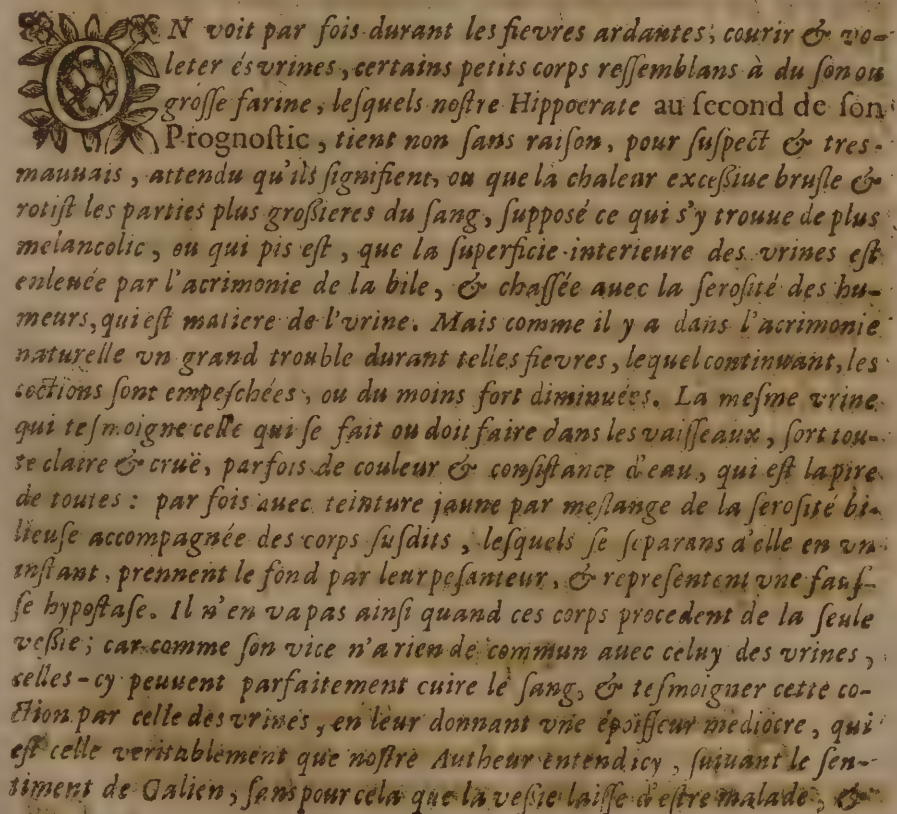 ON voit par fois durant les fievres ardantes, courir & vo-
leter és vrines, certains petits corps ressemblans à du son ou
grosse farine, lesquels nostre Hippocrate au second de son
Prognostic, tient non sans raison, pour suspect & tres-
mauuais, attendu qu'ils signifient, ou que la chaleur excessiue brusle &
rotist les parties plus grossieres du sang, supposé ce qui s'y trouue de plus
melancolic, ou qui pis est, que la superficie interieure des vrines est
enleuée par l'acrimonie de la bile, & chassée auec la serosité des hu-
meurs, qui est matiere de l'vrine. Mais comme il y a dans l'acrimonie
naturelle vn grand trouble durant telles fievres, lequel continuant, les
coctions sont empeschées, ou du moins fort diminuées. La mesme vrine
qui tesmoigne celle qui se fait ou doit faire dans les vaisseaux, sort tou-
te claire & cruë, parfois de couleur & consistance d'eau, qui est la pire
de toutes : par fois auec teinture jaune par meslange de la serosité bi-
lieuse accompagnée des corps susdits, lesquels se separans d'elle en vn
instant, prennent le fond par leur pesanteur, & representent vne faus-
se hypostase. Il n'en va pas ainsi quand ces corps procedent de la seule
vessie; car comme son vice n'a rien de commun auec celuy des vrines,
celles-cy peuuent parfaitement cuire le sang, & tesmoigner cette co-
ction par celle des vrines, en leur donnant vne époisseur mediocre, qui
est celle veritablement que nostre Autheur entend icy, suiuant le sen-
timent de Galien, sans pour cela que la vessie laisse d'estre malade, &